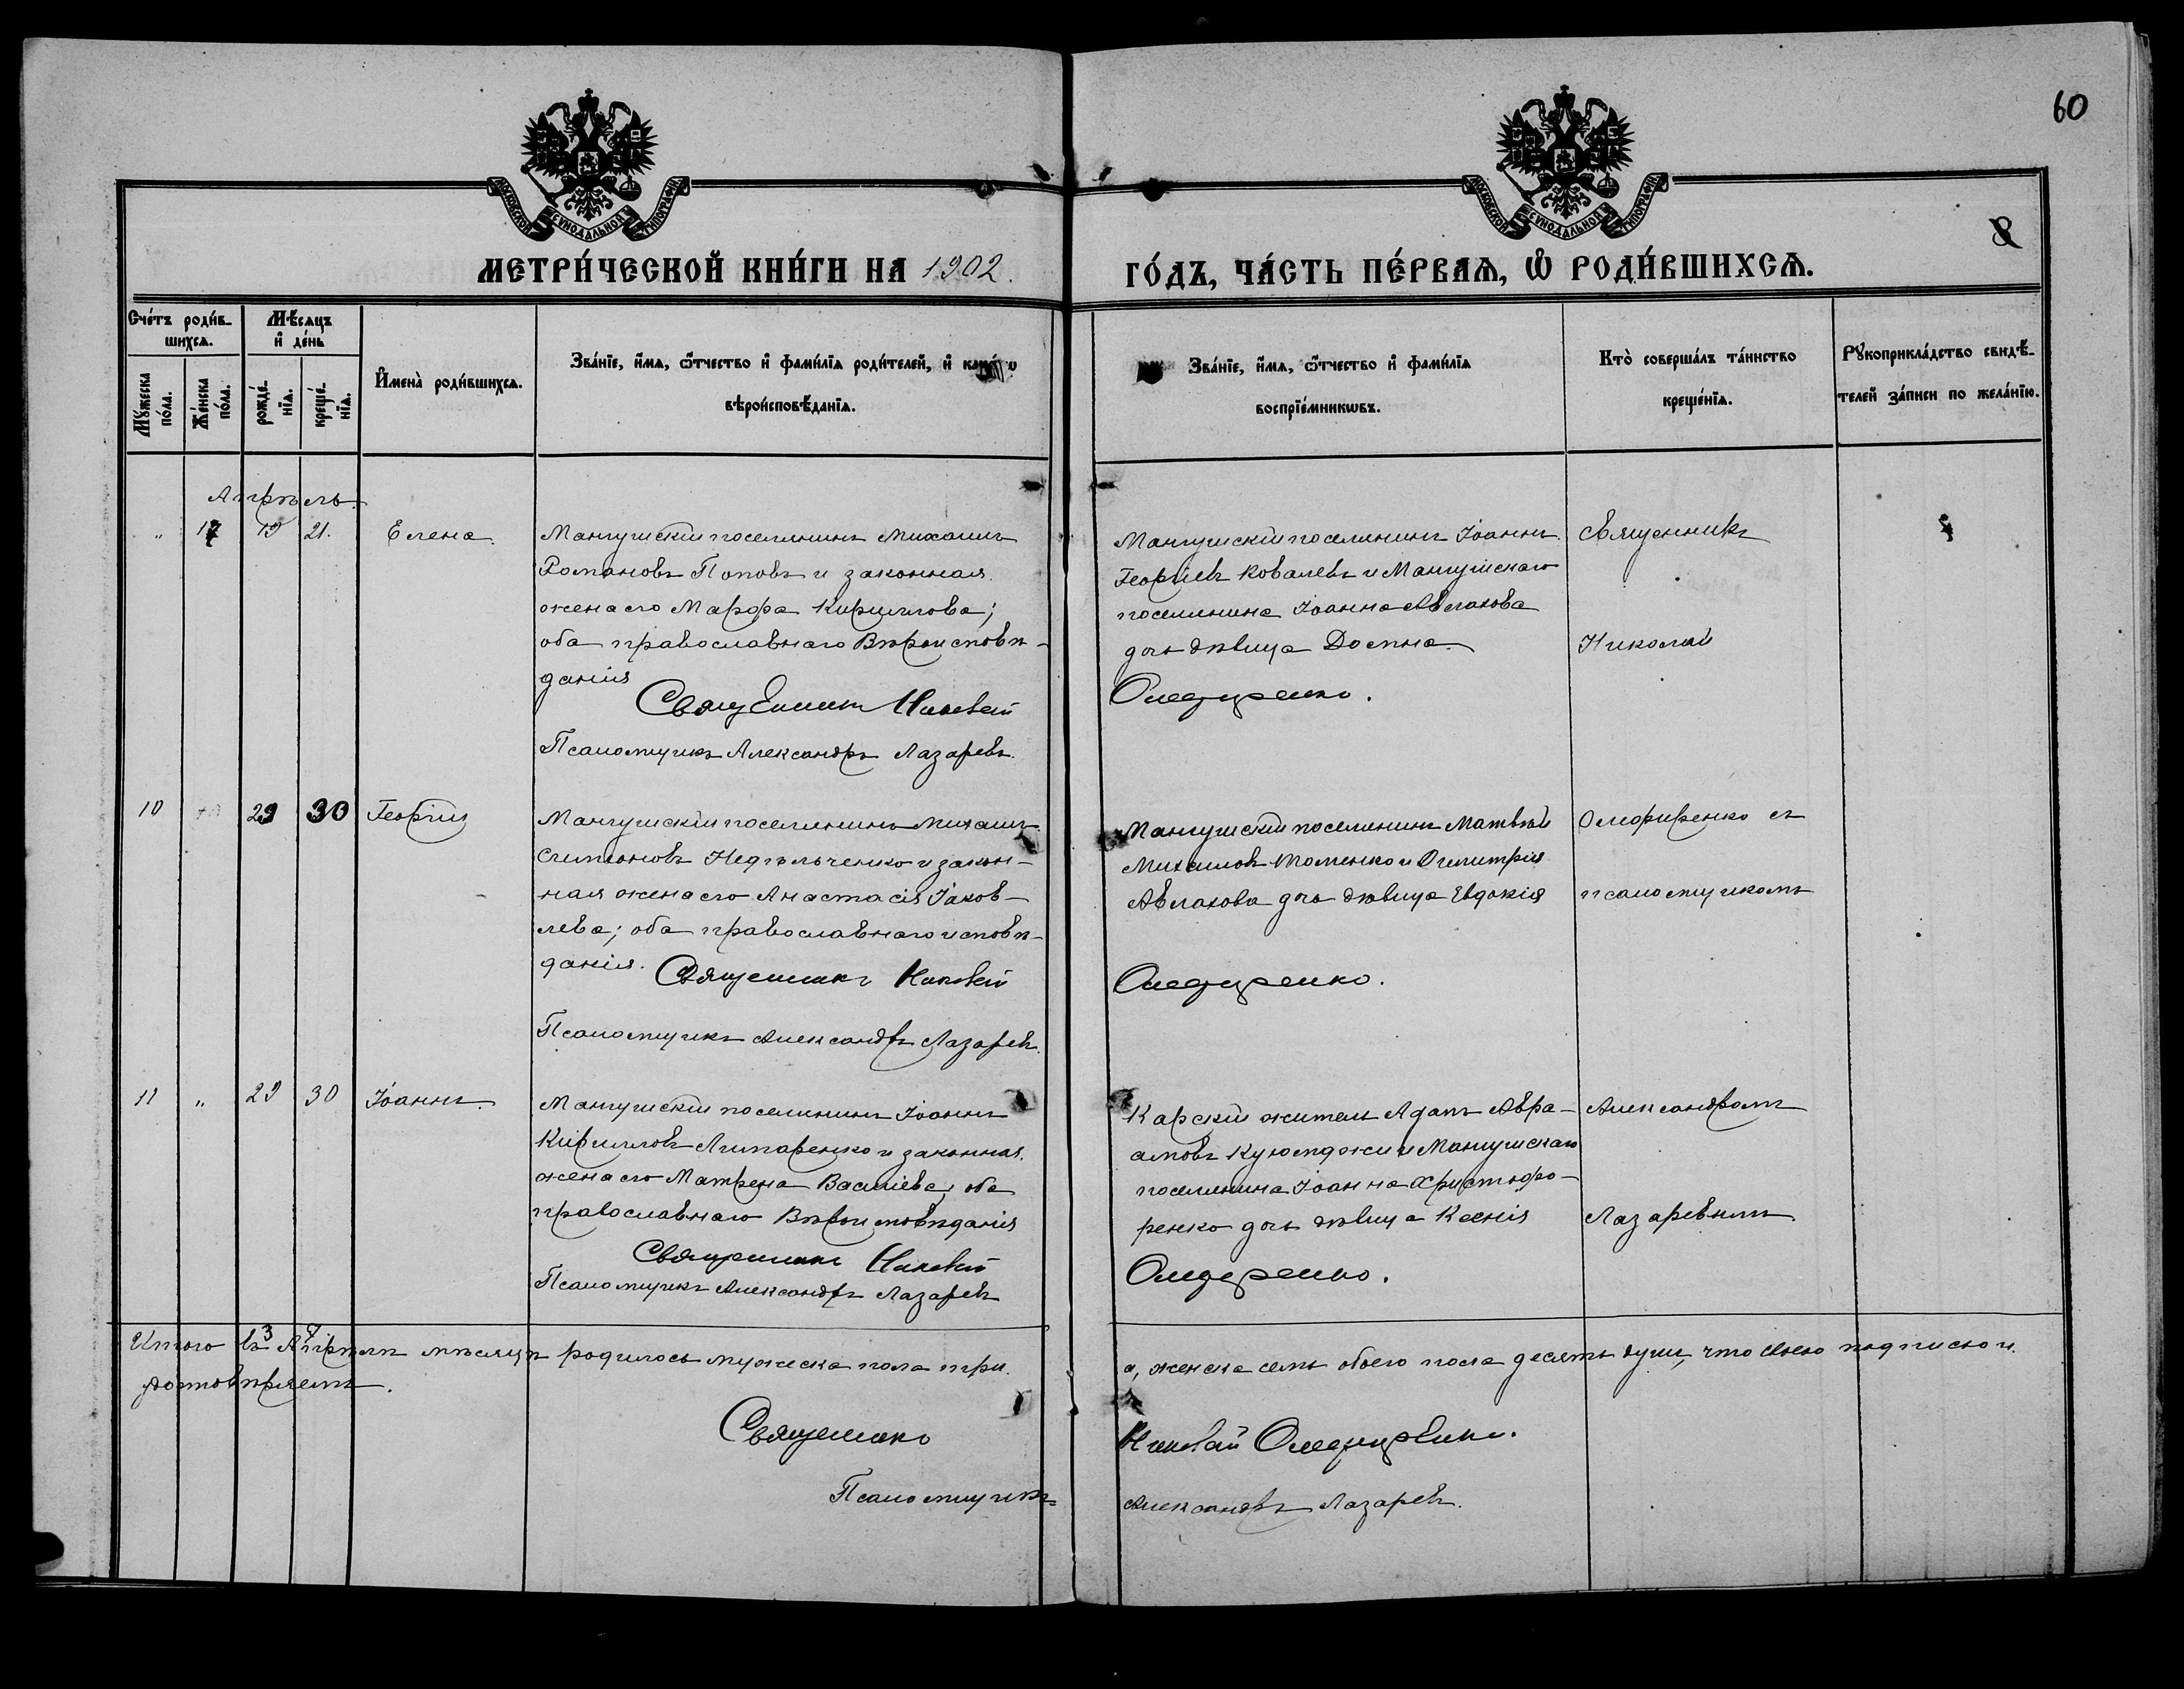 60
МОСКОВСКОЙ СѴНОДАЛЬНОЙ ТИПОГРАФІИ
МОСКОВСКОЙ СѴНОДАЛЬНОЙ ТИПОГРАФІИ
8
МЕТРИ́ЧЕСКОЙ КНИ́ГИ НА 1902.
ГО́ДЪ, ЧА́СТЬ ПЕ́РВАѦ, Ѡ РОДИ́ВШИХСѦ.
Сче́тъ роди́в-
шихсѧ.
Мꙋ́жеска по́ла.
Же́нска по́ла.
Мѣ́сѧцъ
и҆ де́нь
рожде́-нїѧ.
креще́-нїѧ.
И҆мена̀ роди́вшихсѧ.
Зва́нїе, и҆́мѧ, ѻ҆́тчество и҆ фами́лїѧ роди́телей, и҆
вѣроисповѣ́данїѧ.
Зва́нїе, и҆́мѧ, ѻ҆́тчество и҆ фами́лїѧ
воспрїе́мникѡвъ.
Кто̀ соверша́лъ та́инство
креще́нїѧ.
Рꙋкоприкла́дство свидѣ́-
телей за́писи по жела́нїю.
Апрѣль.
" 17 19 21. Елена.
Мангушскій поселянинъ Михаилъ
Романовъ Поповъ и законная
жена его Марѳа Кириллова;
оба православнаго Вѣроисповѣ-
данія
Священникъ Николай
Псаломщикъ Александръ Лазаревъ.
Мангушскій поселянинъ Іоаннъ
Георгіевъ Ковалевъ и Мангушскаго
поселянина Іоанна Авлахова
дочь дѣвица Домна.
Олефиренко.
Священникъ
Николай
10 29 30 Георгій
Мангушскій поселянинъ Михаилъ
Симеоновъ Недѣльченко и закон-
ная жена его Анастасія Іаков-
лева; оба православнаго исповѣ-
данія.
Священникъ Николай
Псаломщикъ Александръ Лазаревъ.
Мангушскій поселянинъ Матвѣй
Михаиловъ Томенко и Димитрія
Авлахова дочь дѣвица Евдокія
Олефиренко.
Олефиренко съ
псаломщикомъ
11 " 29 30 Іоаннъ.
Мангушскій поселянинъ Іоаннъ
Кирилловъ Липаренко и законная
жена его Матрена Васильева, оба
православнаго Вѣроисповѣданія
Священникъ Николай
Псаломщикъ Александръ Лазаревъ
Карскій житель Адамъ Авра-
амовъ Куюмджи и Мангушскаго
поселянина Іоанна Христофо-
ренко дочь дѣвица Ксенія
Олефиренко.
Александромъ
Лазаревымъ.
3 7
Итого въ Апрѣлѣ мѣсяцѣ родилось мужеска пола три
а, женска семь обоего пола десять душъ, что своею подписью и
удостовѣряемъ.
Священникъ
Николай Олефиренко.
Псаломщикъ
Александръ Лазаревъ.